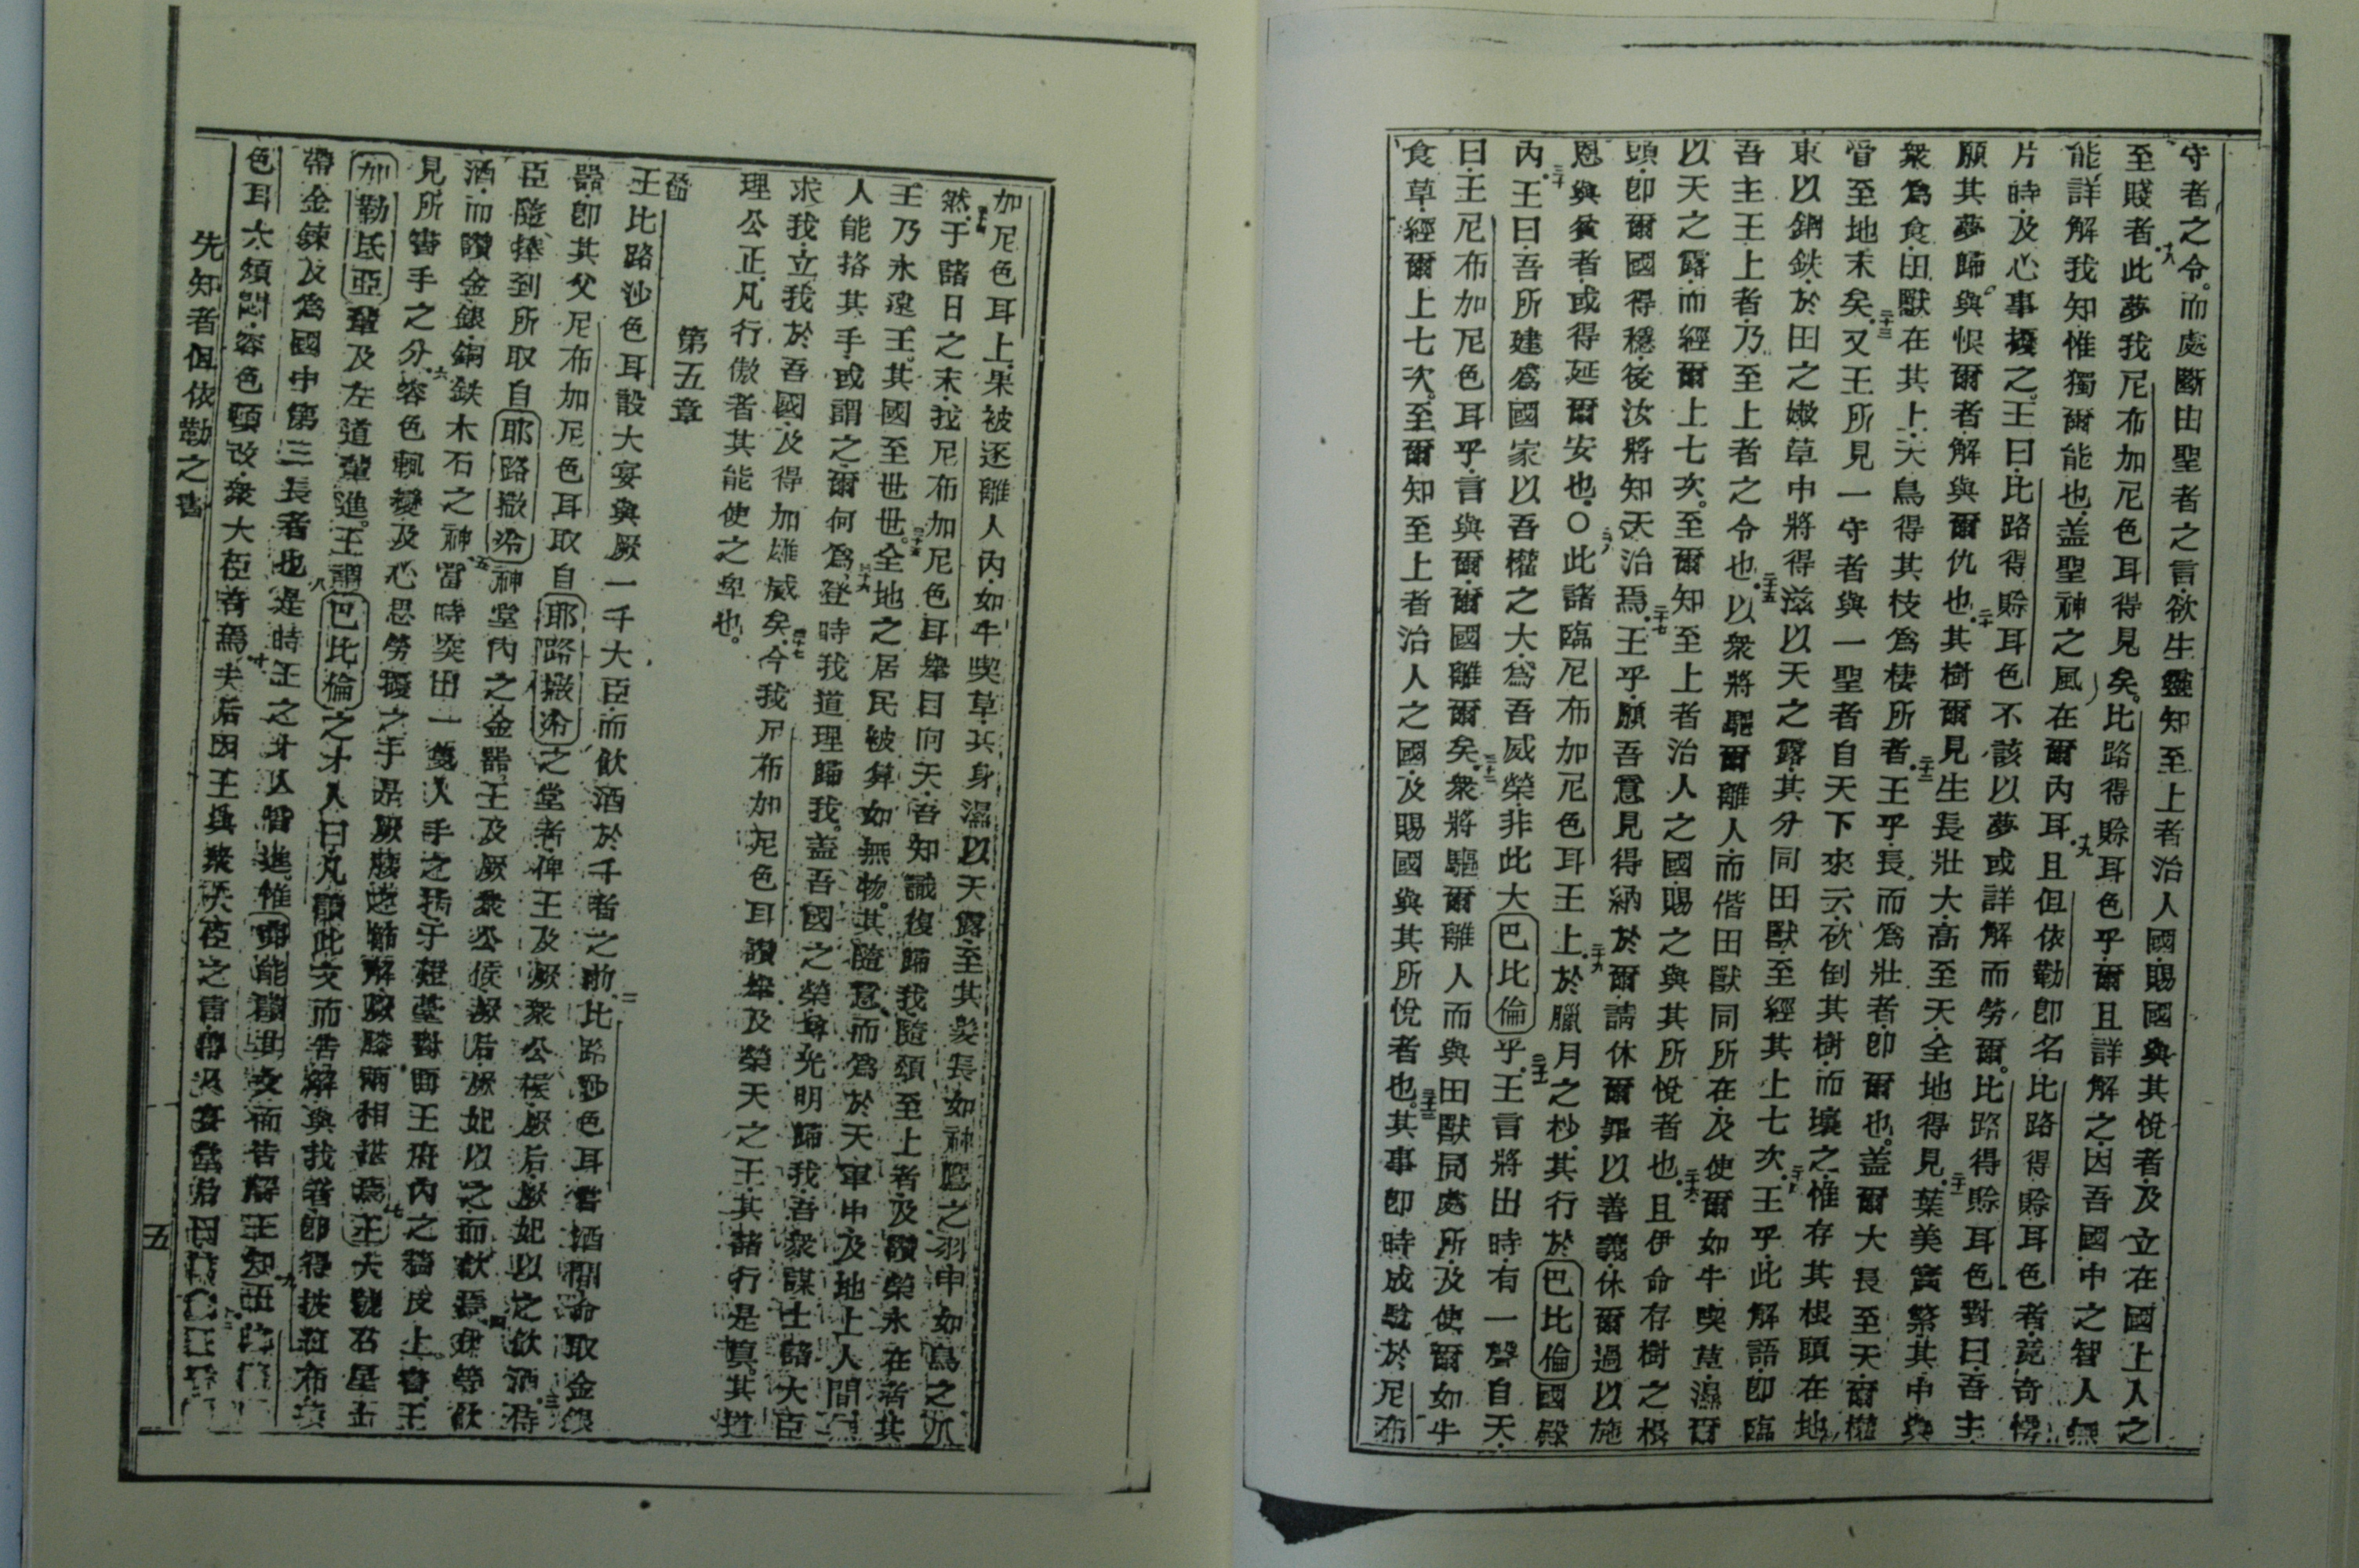 守者之令。而處斷由聖者之言、欲生靈知至上者治人國、賜國與其悅者、及立在國上人之
至賤者、十八此夢我尼布加尼色耳得見矣。比路得賒耳色乎、爾且詳解之、因吾國中之智人無
能詳解我知、惟獨爾能也、盖聖神之風在爾內耳。十九且但依勒卽名比路得賒耳色者、竟奇愕
片時、及心事擾之。王曰、比路得賒耳色不該以夢或詳解而勞爾。比路得賒耳色對曰、吾主、
願其夢歸與恨爾者、解與爾仇也、二十其樹爾見生長壯大、高至天、全地得見、二十一葉美實繁、其中與
衆爲食、田獸在其上、天鳥得其枝爲棲所者、二十二王乎、長而爲壯者、卽爾也。盖爾大長至天、爾權
管至地末矣、二十三又王所見一守者與一聖者自天下來云、砍倒其樹、而壞之、惟存其根頭在地、
束以銅鉄、於田之嫩草中將得滋以天之露、其分同田獸、至經其上七次、二十四王乎、此解語、卽臨
吾主王上者、乃至上者之令也、二十五以衆將驅爾離人、而偕田獸同所在、及使爾如牛喫草、濕爾
以天之露、而經爾上七次。至爾知至上者治人之國賜之與其所悅者也、二十六且伊命存樹之根
頭、卽爾國得穩、後汝將知天治焉、二十七王乎、願吾意見得納於爾、請休爾罪以善義、休爾過以施
恩與貧者、或得延爾安也、○二十八此諸臨尼布加尼色耳王上、二十九於臘月之杪、其行於巴比倫國殿
內、三十王曰、吾所建爲國家以吾權之大、爲吾威榮、非此大巴比倫乎、三十一王言將出時、有一聲自天、
曰、王尼布加尼色耳乎、言與爾、爾國離爾矣、三十二衆將驅爾離人而與田獸同處所、及使爾如牛
食草、經爾上七次。至爾知至上者治人之國、及賜國與其所悅者也。三十三其事卽時成驗於尼布
加尼色耳上、果被逐離人內、如牛喫草、其身濕以天露、至其髮長如神鷹之羽、中如鳥之爪
然、三十四于諸日之末、我尼布加尼色耳舉目向天、吾知識復歸我、隨頌至上者、及讚榮永在者、其
王乃永遠王。其國至世世。三十五全地之居民被算如無物。其隨意而爲於天軍中、及地上人間、無
人能挌其手、或謂之、爾何爲、三十六登時我道理歸我。盖吾國之榮尊光明歸我、吾衆謀士諸大臣
求我、立我於吾國、及得加雄威矣、三十七今我尼布加尼色耳讚舉及榮天之王、其諸行是眞。其道
理公正、凡行傲者其能使之卑也。
第五章
王比路沙色耳設大宴與厥一千大臣、而飲酒於千者之前、二比路沙色耳嘗酒間命取金銀
器、卽其父尼布加尼色耳取自耶路撒冷之堂者、俾王及厥衆公侯、厥后、厥妃以之飲酒、三侍
臣隨捧到所取自耶路撒冷神堂內之金器、王及厥衆公侯、厥后、厥妃以之而飲焉、四伊等飲
酒、而讚金銀、銅鉄木石之神、五當時突出一隻人手之指、于燈臺對面王府內之墻皮上書、王
見所書手之分、六容色輒變及心思勞擾之手是厥腰之節解、厥膝兩相搓焉、七王大聲召星士
加勒氐亞輩及左道輩進。王謂巴比倫之才人曰、凡讀此文而告解與我者、卽得披紅布、項
帶金鍊、及爲國中第三長者也、八是時王之才人皆進、惟弗能讀其文而告解王知、九王比路沙
色耳大煩悶、容色頓改、衆大臣奇焉、十夫后因王與衆大臣之言、
先知者但依勒之書
五